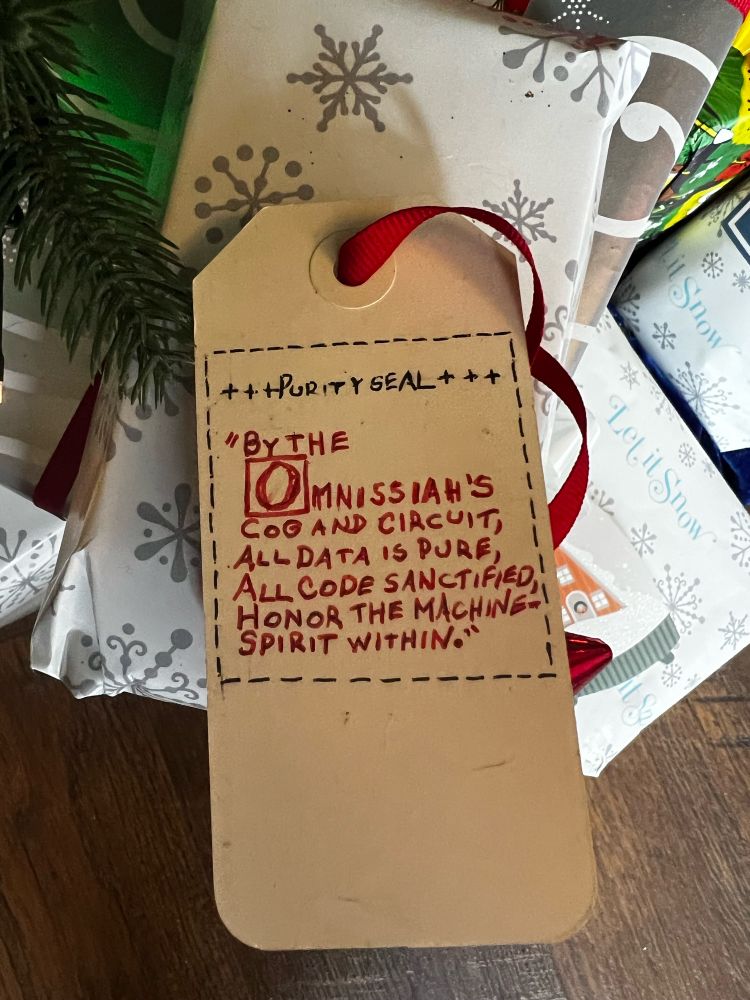 +++PURITY SEAL+++
"BY THE
OMNISSIAH'S
COG AND CIRCUIT,
ALL DATA IS PURE,
ALL CODE SANCTIFIED,
HONOR THE MACHINE-
SPIRIT WITHIN."
Let it Snow
Let it Snow